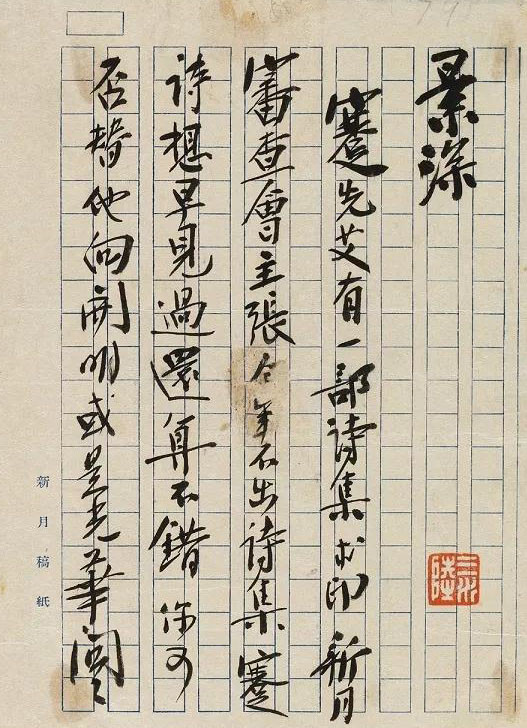 景深
蹇先艾有一部詩集求印新月
審查會主張今年不出詩集蹇
詩想早見過還算不錯你可
否替他向開明或是光華
新月稿紙
三水陸